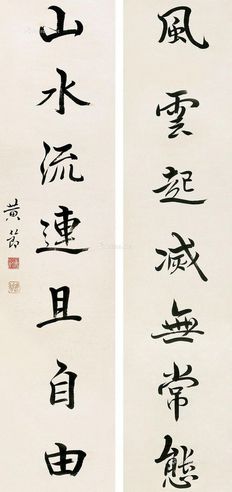 風雲起滅無常態
山水流連且自由
黄節